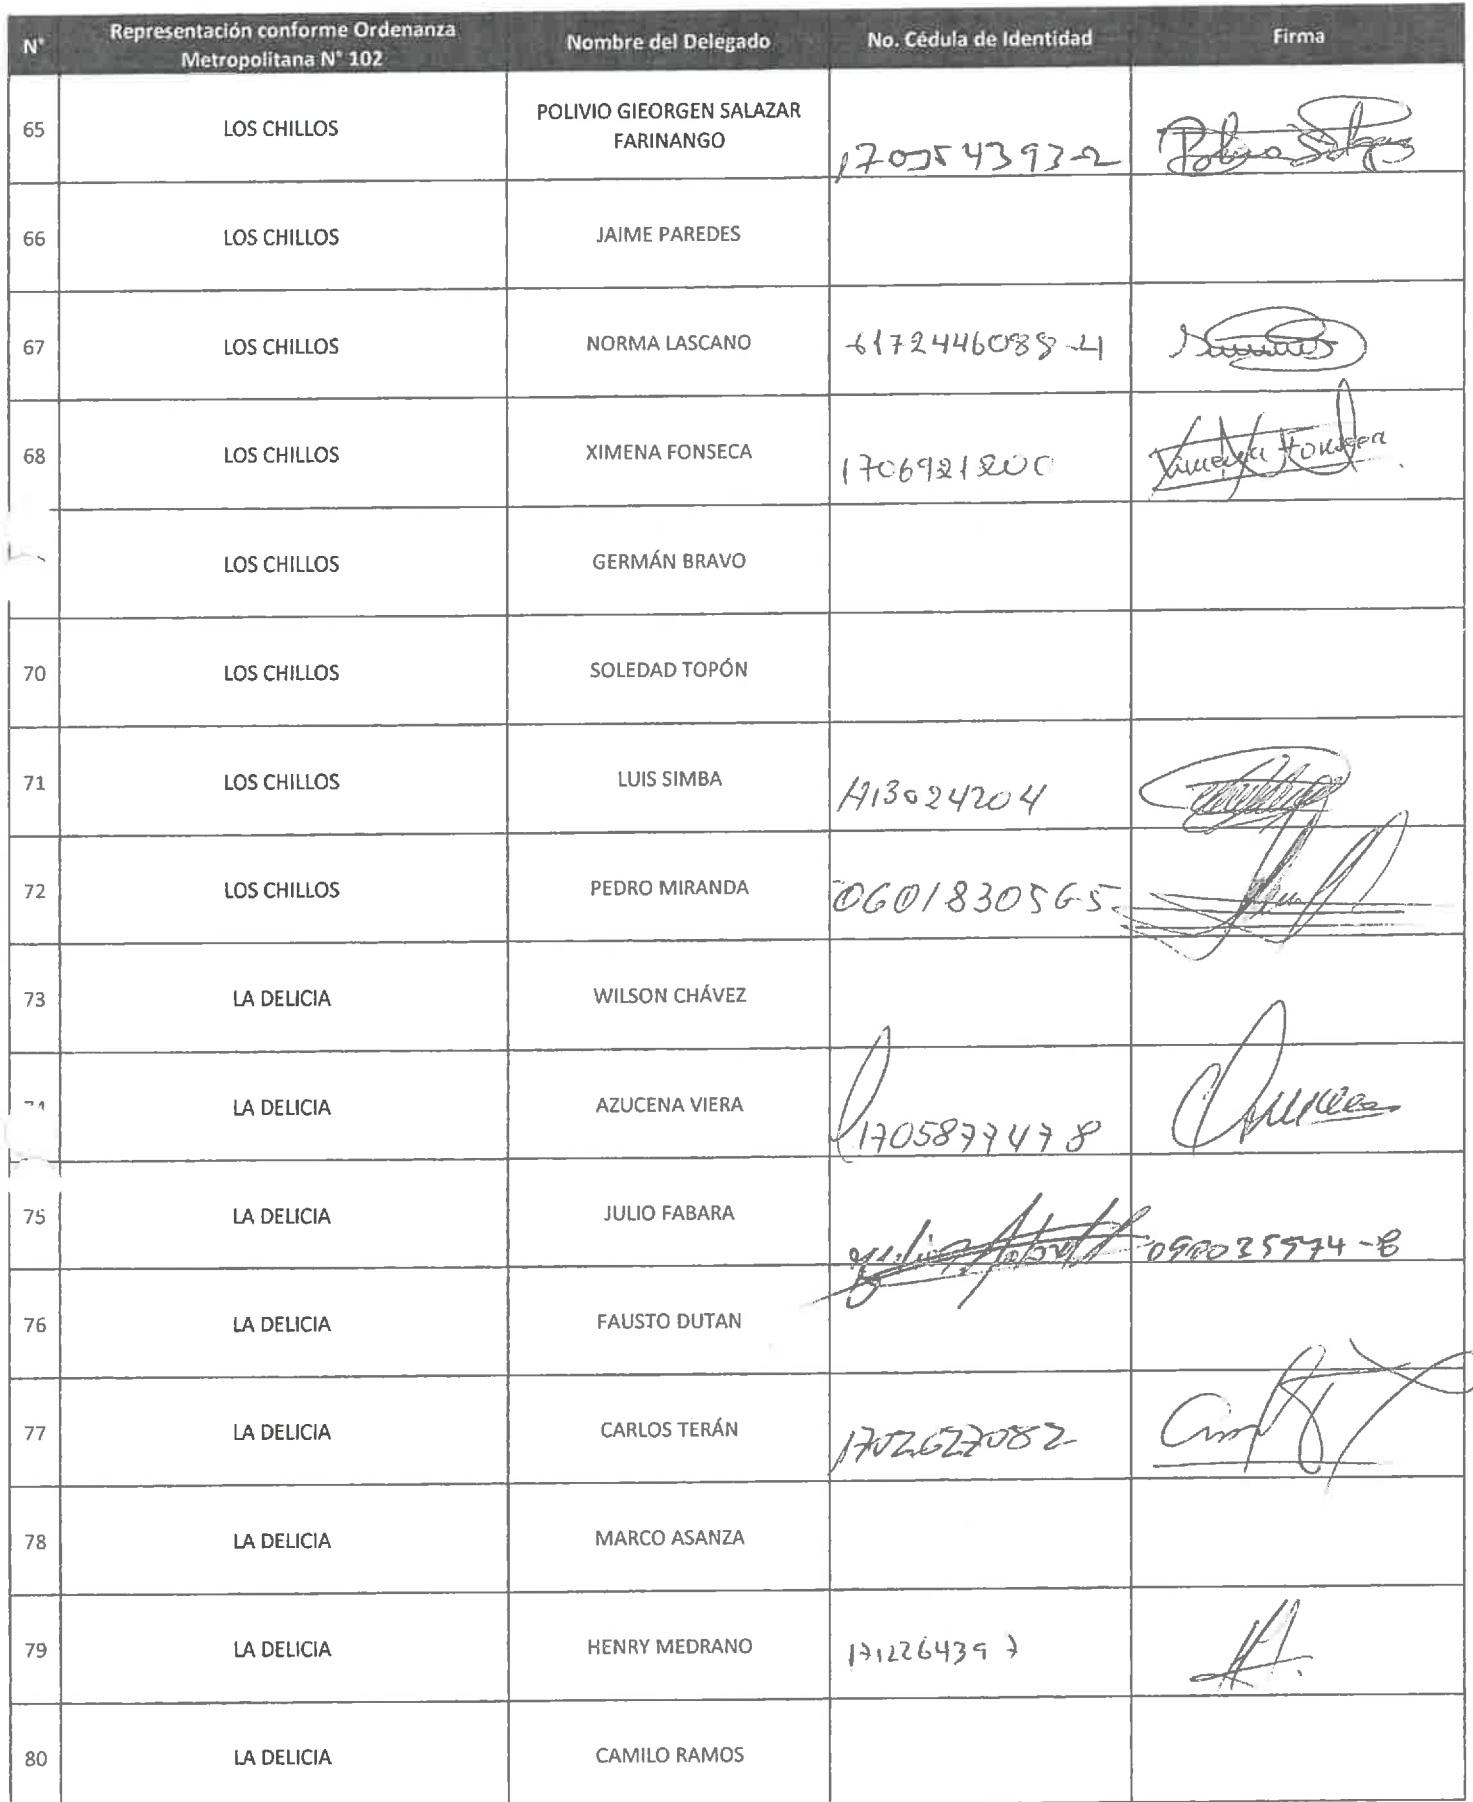 N° Representación conforme Ordenanza Metropolitana N° 102 Nombre del Delegado No. Cédula de Identidad Firma
65 LOS CHILLOS POLIVIO GIEORGEN SALAZAR FARINANGO
66 LOS CHILLOS JAIME PAREDES
67 LOS CHILLOS NORMA LASCANO
68 LOS CHILLOS XIMENA FONSECA 1706921200 Ximena Fonseca
LOS CHILLOS GERMÁN BRAVO
70 LOS CHILLOS SOLEDAD TOPÓN
71 LOS CHILLOS LUIS SIMBA
72 LOS CHILLOS PEDRO MIRANDA 060183056-5
73 LA DELICIA WILSON CHÁVEZ
74 LA DELICIA AZUCENA VIERA 1705877478
75 LA DELICIA JULIO FABARA
76 LA DELICIA FAUSTO DUTAN
77 LA DELICIA CARLOS TERÁN 1702627082
78 LA DELICIA MARCO ASANZA
79 LA DELICIA HENRY MEDRANO 171226439 7
80 LA DELICIA CAMILO RAMOS